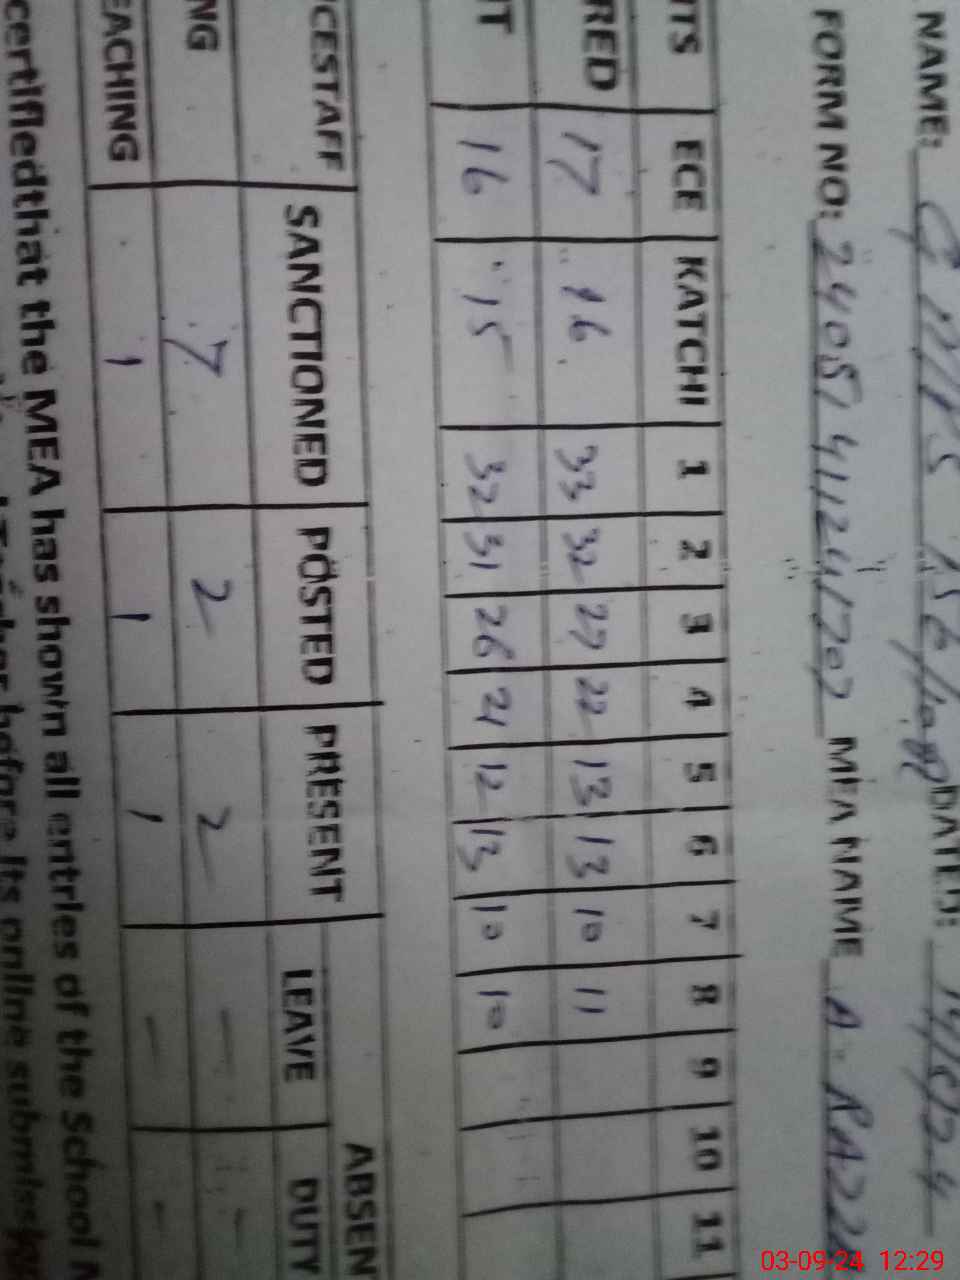 NAME: DATED:
FORM NO: MEA NAME A. RAZZ
TS ECE KATCHI 1 2 3 4 5 6 7 8 9 10 11
RED 17 16 33 32 27 22 13 13 10 11
T 16 15 32 31 26 21 12 13 10 10
ABSEN
CESTAFF SANCTIONED POSTED PRESENT LEAVE DUTY
NG 7 2 2 - -
EACHING 1 1 1 - -
certifiedthat the MEA has shown all entries of the School
before its online submission
03-09-24 12:29